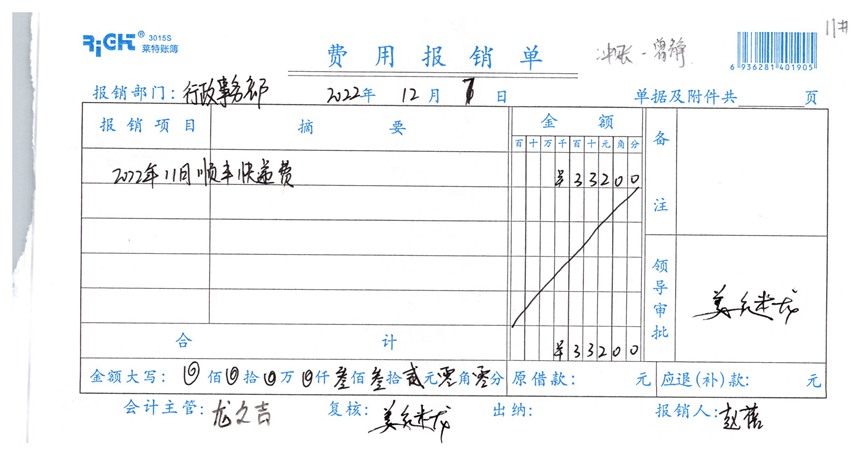 RiGHT® 3015S
莱特账簿
费用报销单
冲账-曾静
11#
6 936281 401905
报销部门:行政事务部 2022年 12月 日 单据及附件共 页
报销项目 摘要 金额 备注
百十万千百十元角分
2022年11月顺丰快递费 ¥33200
领导审批
合计 ¥33200
金额大写:⓪佰⓪拾⓪万⓪仟叁佰叁拾贰元零角零分 原借款: 元 应退(补)款: 元
会计主管:龙文吉 复核: 出纳: 报销人:赵蓓